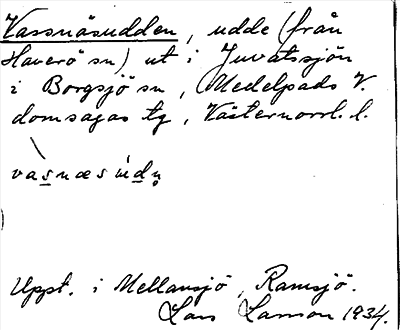 Vassnäsudden, udde (från
Haverö sn) ut i Juvatssjön
i Borgsjö sn, Medelpads V.
domsagas tg, Västernorrl. l.
vàsnæsúdn̥
Uppt. i Mellansjö, Ramsjö.
Lars Larsson 1934.